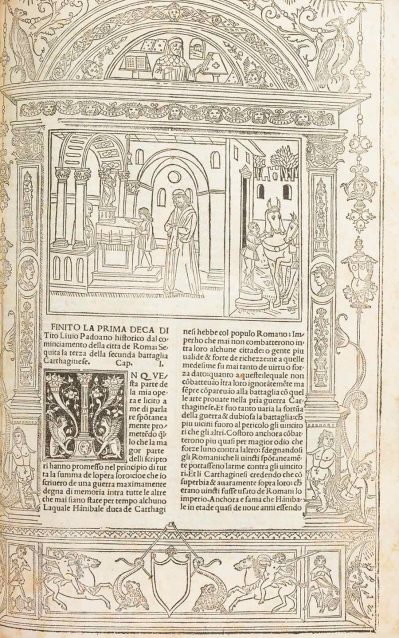 FINITO LA PRIMA DECA DI
Tito Liuio Padoano historico dal co
minciamento della citta de Roma: Se
quita la terza della secunda battaglia
Carthaginese. Cap. I.
N QVE
sta parte de
la mia ope
ra e licito a
me di parla
re spōtanea
mente pro
metēdo
lio che la ma
gor parte
delli scripto
ri hanno promesso nel principio di tut
ta la summa de lopera loro: cioe che io
scriuero de una guerra maximamente
degna di memoria intra tutte le altre
che mai sono state per tempo alchuno
Laquale Hānibale duca de Carthagi
nesi hebbe col populo Romano: Im
perho che mai non combatterono in
tra loro alchune cittade: o gente piu
ualide & forte de richezze: ne a quelle
medesime fu mai tanto de uirtu o for
za dato: quanto a queste: lequale non
cōbatteuāo ītra loro ignorātemēte ma
sēpre cōpareuāo alla battaglia cō quel
le arte prouate nella pria guerra Car
thaginese. Et fuo tanto uaria la forssa
della guerra & dubiosa la battaglia: ch
piu uicini fuoro al pericolo gli uincito
ri che gli altri. Costoro anchora cōbat
terono piu quasi per magior odio che
forze luno contra laltro: sdegnandosi
gli Romani: che li uincti spōtaneamē
te portasseno larme contra gli uincito
ri. Et li Carthaginesi credendo che cō
superbia & auaramente sopra loro: ch
erano uincti fusse usato de Romani lo
imperio. Anchora e fama che Hāniba
le in etade quasi de noue anni essendo